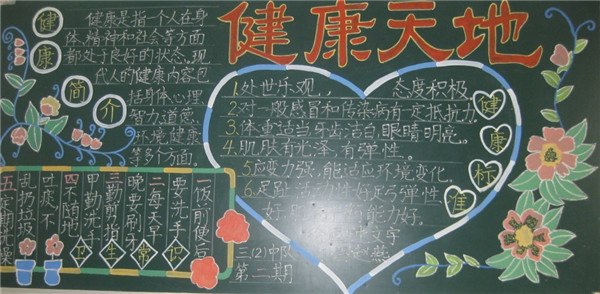 健康天地
健康简介
健康是指一个人在身
体、精神和社会等方面
都处于良好的状态。现
代人的健康内容包
括身体心理
智力、道德、
环境健康
等多个方面。
1.处世乐观, 态度积极
2.对一般感冒和传染病有一定抵抗力
3.体重适当,牙齿洁白,眼睛明亮。
4.肌肤有光泽,有弹性。
5.应变力强,能适应环境变化。
6.足趾活动性好足弓弹性
好,
能力好。
健康标准
三(2)中队
第二期
卫生常识
一饭前便后
要洗手
二每天早
晚要刷牙
三勤剪指
甲勤洗
四不随地
吐痰不
乱扔垃圾
五定期洗澡